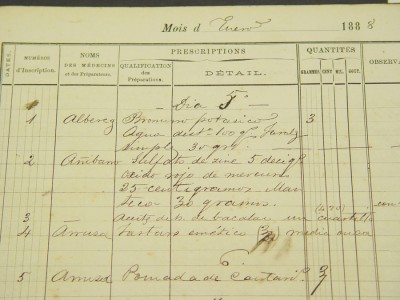 Mois d Enero 1888
DATES. NUMÉROS d'Inscription. NOMS DES MÉDECINS et des Préparateurs. PRESCRIPTIONS QUANTITÉS OBSERVA
QUALIFICATION des Préparations. DÉTAIL. GRAMMES CENT. MIL. DOCT.
Dia 5
1 Albercq Bromuro potasico 3
Agua dest. 100 g. Jarabe
simple 30 gr
2 Ambaro Sulfato de zinc 5 decig
Oxido rojo de mercurio
25 centigramos Man
teca 30 gramos.
3 Aceite de h de bacalao un cuartillo
4 Amusa Tartaro emético media onza
5 Amusa Pomada de Cantari 3